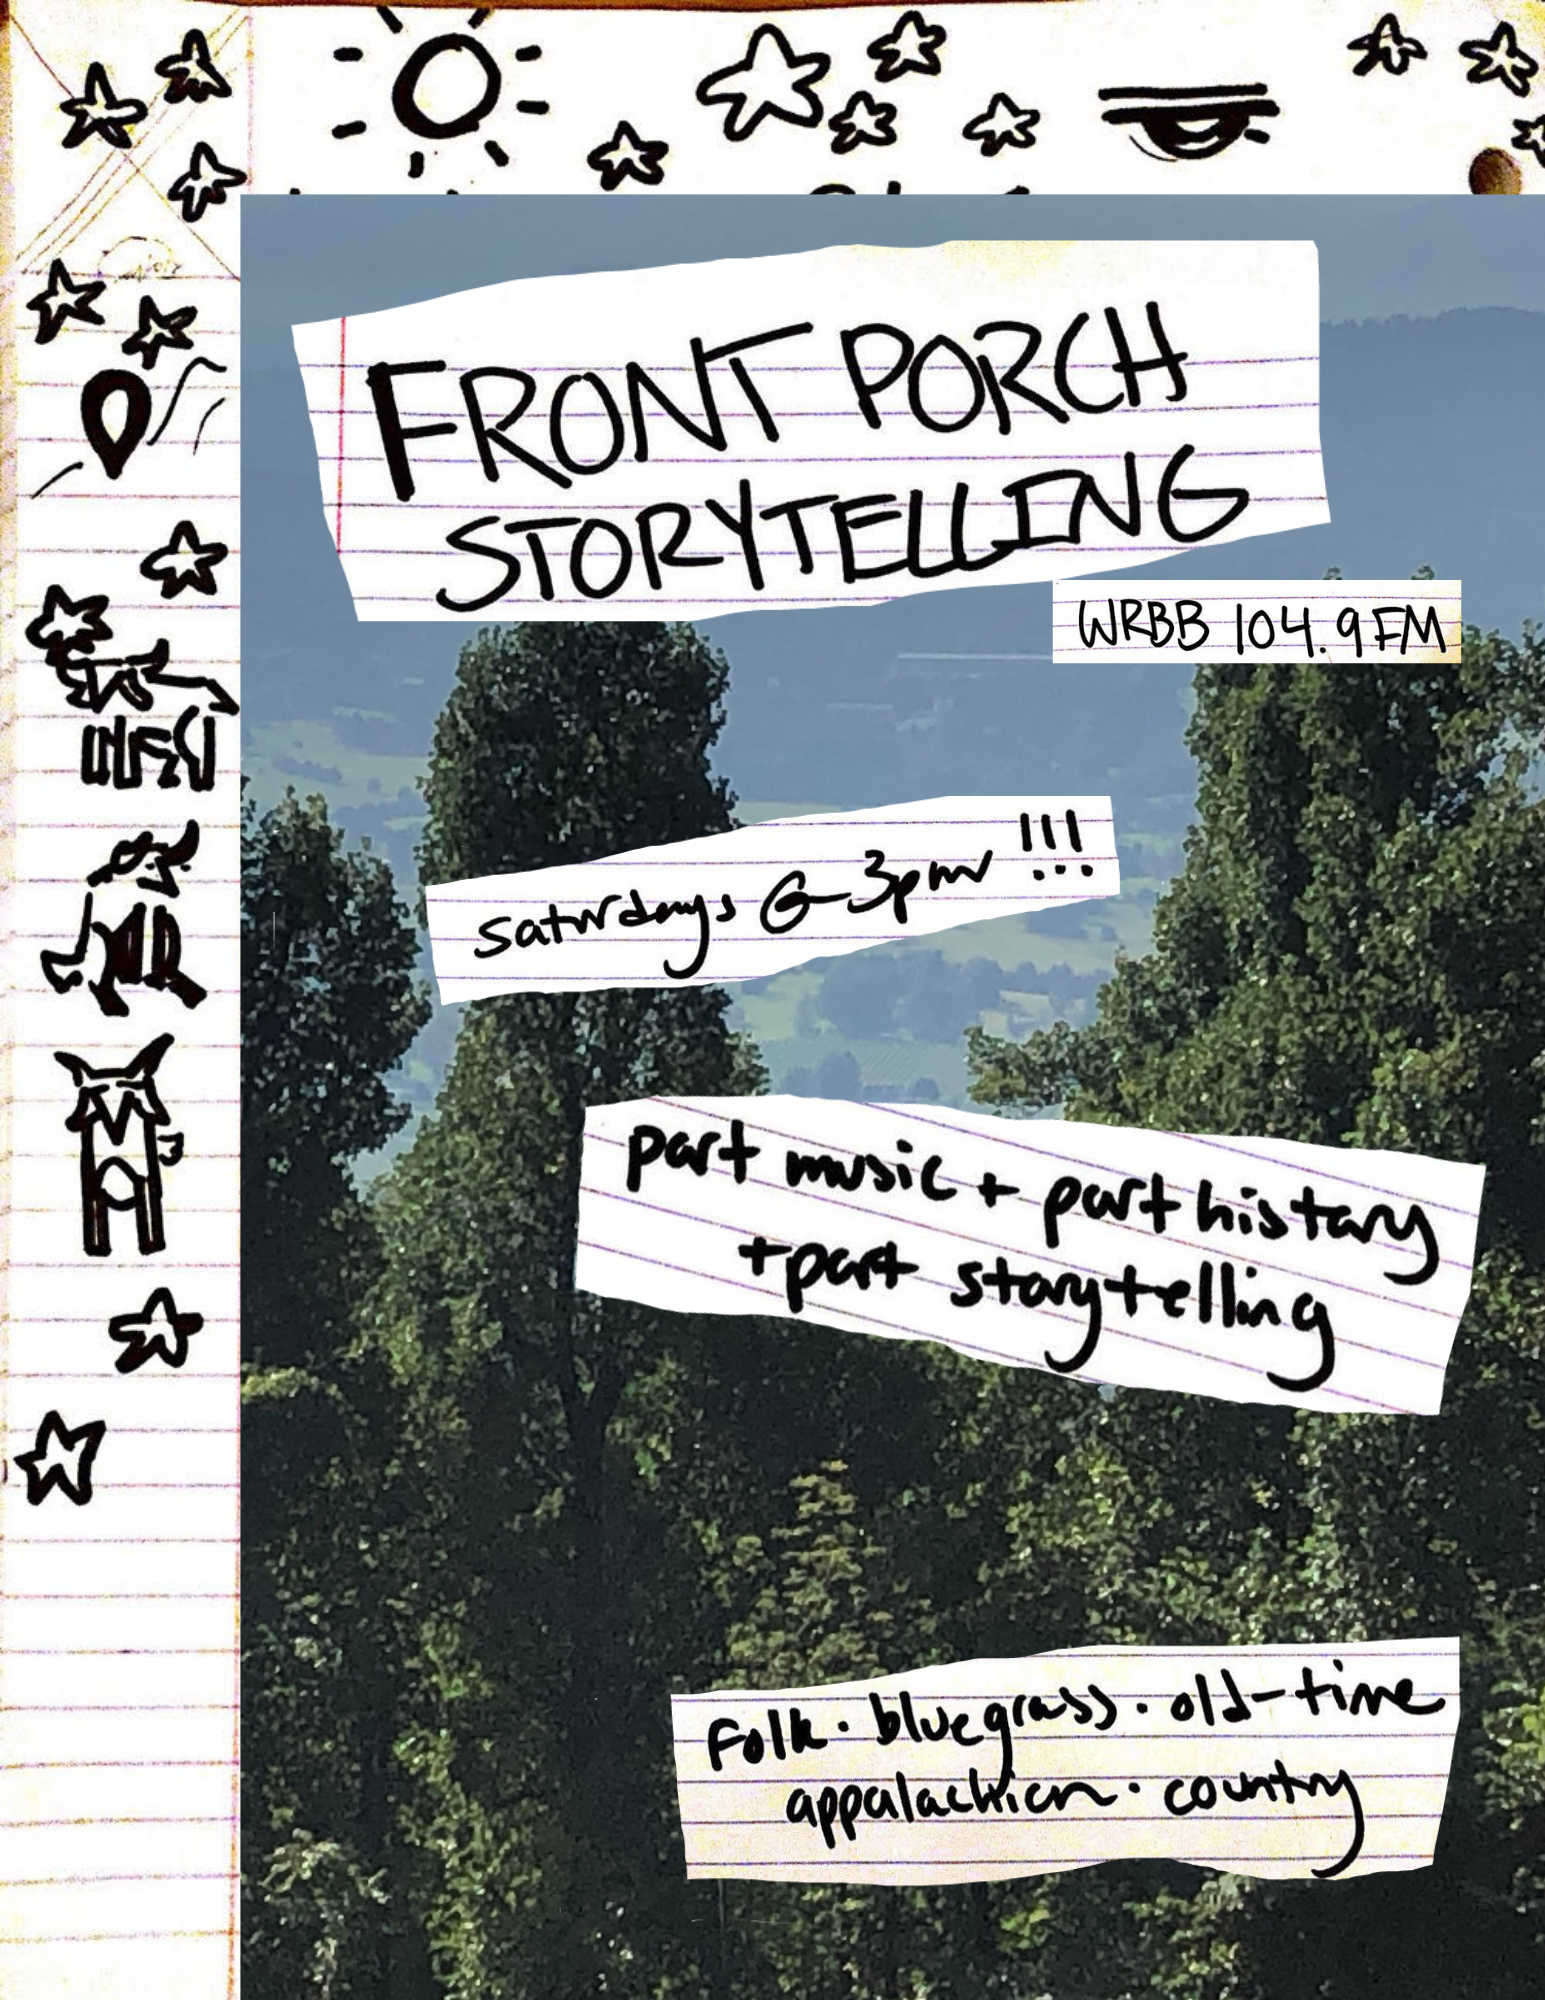 FRONT PORCH
STORYTELLING
WRBB 104.9 FM
saturdays @ 3pm !!!
part music + part history
+ part storytelling
Folk · bluegrass · old-time
appalachian · country